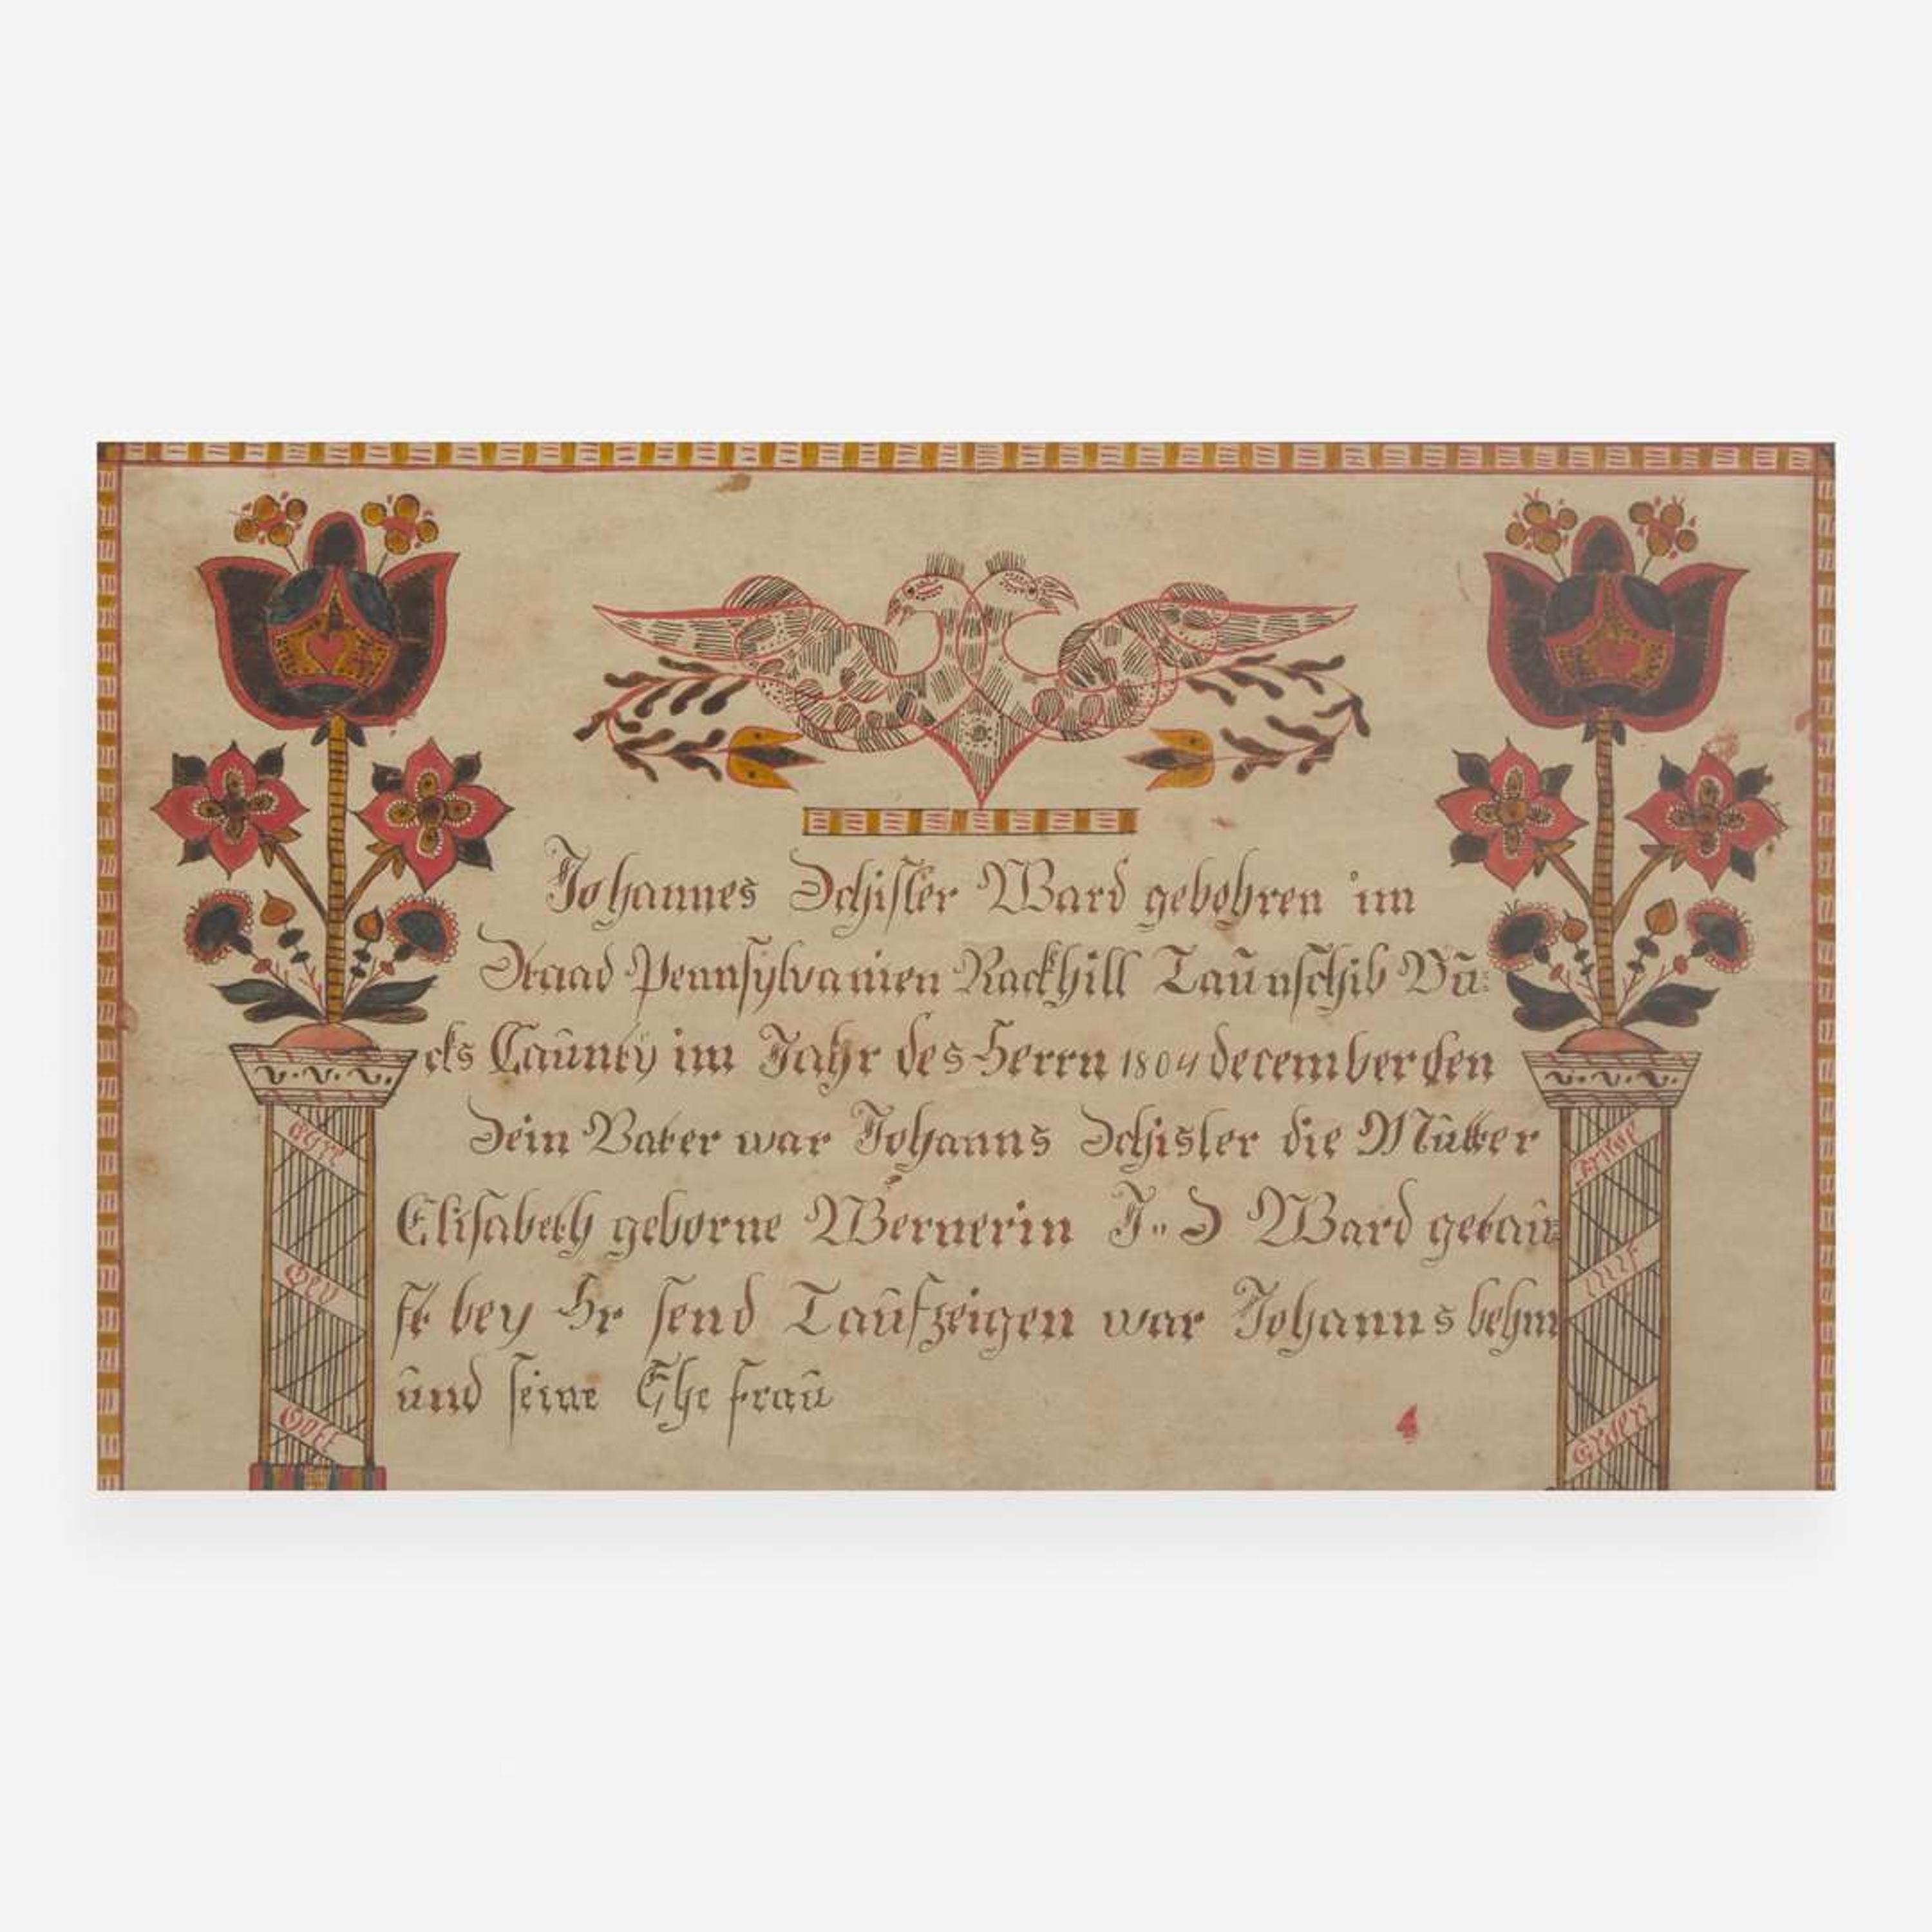 Johannes Schisler Ward gebohren im
Staad Pennsylvanien Rackhill Taunschib Bu:
cks Caunty im Jahr des Herrn 1804 december den
Sein Vater war Johanns Schisler die Mutter
Elisabeth geborne Wernerin J.. S Ward getau
ft bey Hr send Taufzeigen war Johanns behm
und seine Ehe frau
Ehre
Sey
Gott
Friede
auf
Erden